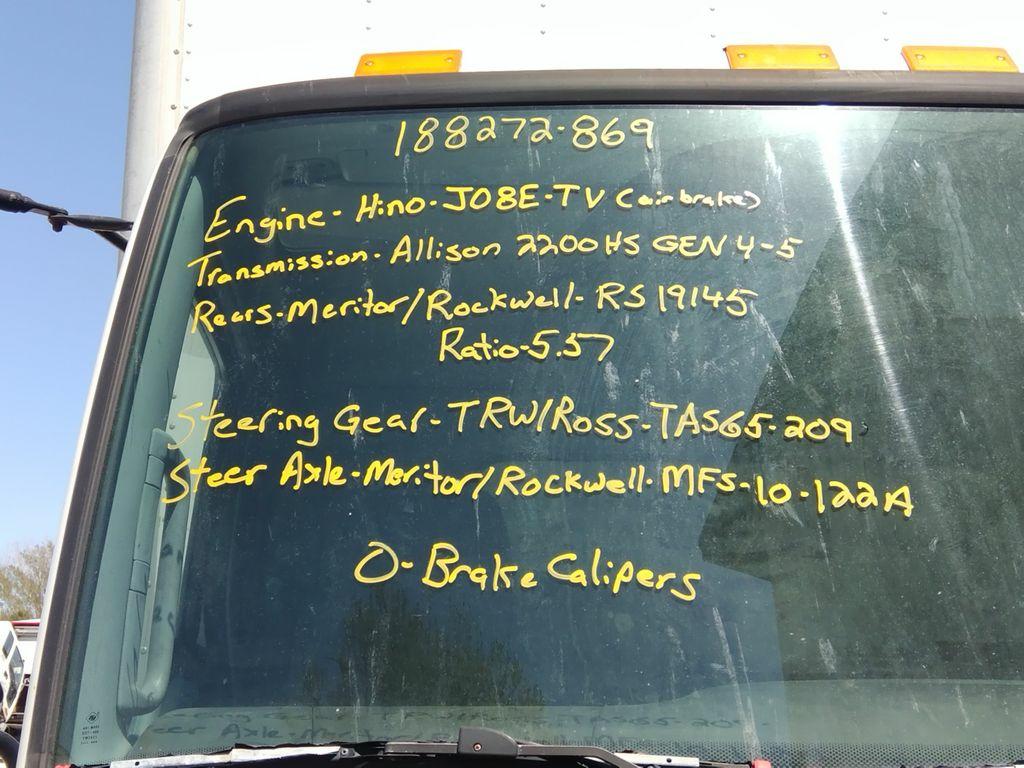 188272-869
Engine-Hino-J08E-TV (air brake)
Transmission-Allison 2200HS GEN 4-5
Rears-Meritor/Rockwell-RS19145
Ratio-5.57
Steering Gear-TRW/Ross-TAS65-209
Steer Axle-Meritor/Rockwell-MFS-10-122A
0-Brake Calipers